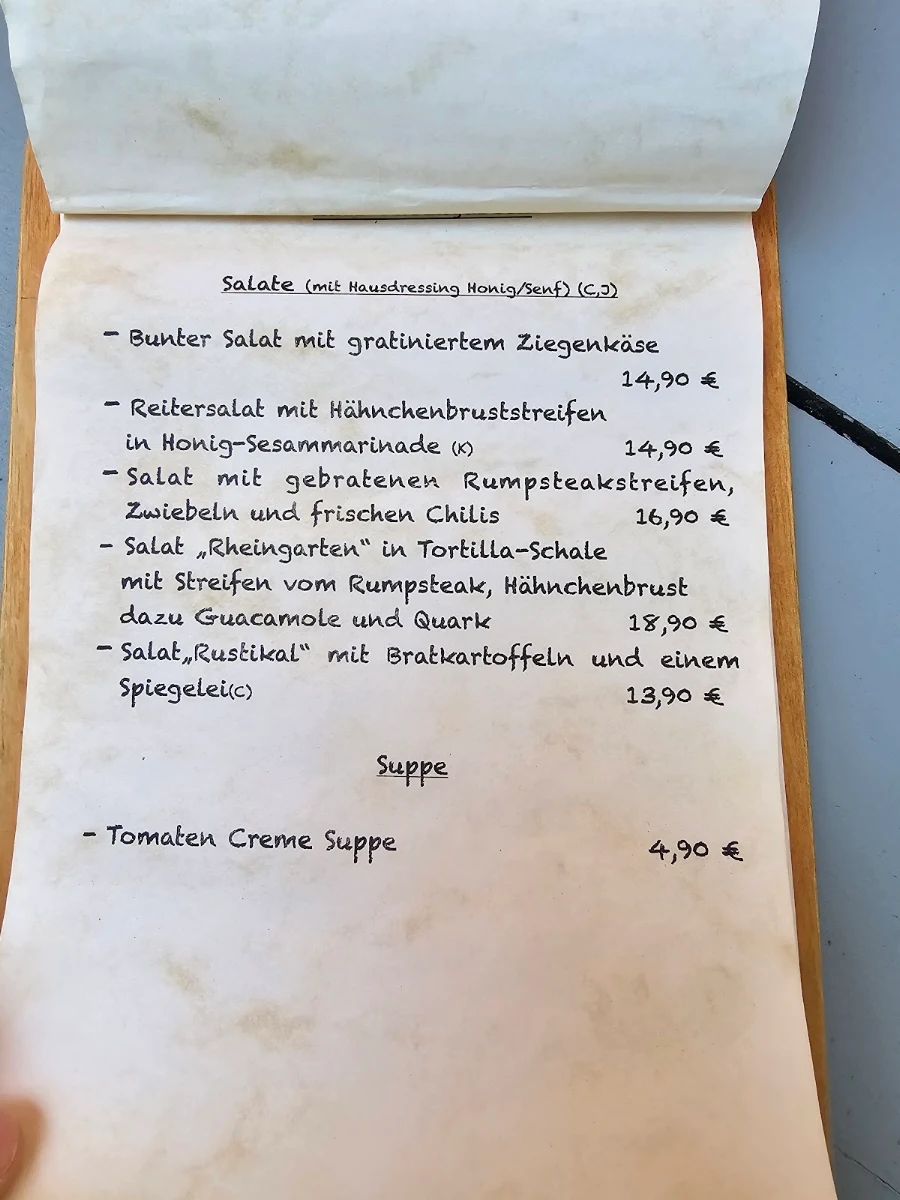 Salate (mit Hausdressing Honig/Senf) (C,J)
- Bunter Salat mit gratiniertem Ziegenkäse
14,90 €
- Reitersalat mit Hähnchenbruststreifen
in Honig-Sesammarinade (K) 14,90 €
- Salat mit gebratenen Rumpsteakstreifen,
Zwiebeln und frischen Chilis 16,90 €
- Salat „Rheingarten“ in Tortilla-Schale
mit Streifen vom Rumpsteak, Hähnchenbrust
dazu Guacamole und Quark 18,90 €
- Salat„Rustikal“ mit Bratkartoffeln und einem
Spiegelei(C) 13,90 €
Suppe
- Tomaten Creme Suppe 4,90 €